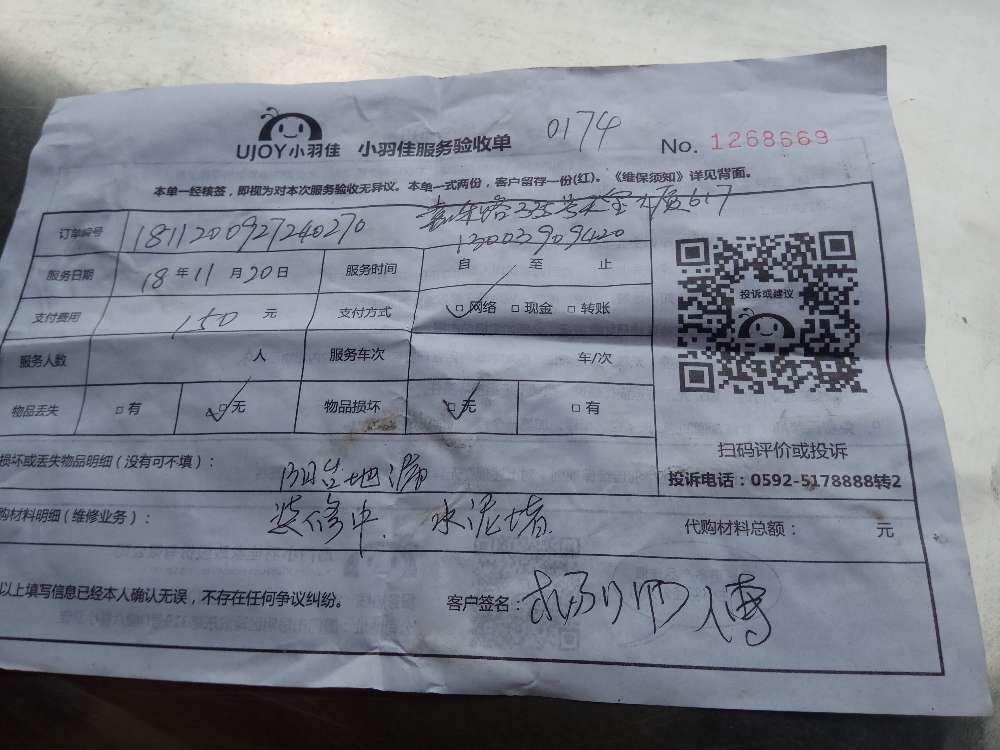 UJOY小羽佳 小羽佳服务验收单 0174 No. 1268669
本单一经核签，即视为对本次服务验收无异议。本单一式两份，客户留存一份(红)。《维保须知》详见背面。
订单编号 181120092724027​0 335号 617
13003909420
服务日期 18年11月20日 服务时间 自 至 止
支付费用 150 元 支付方式 网络 现金 转账
服务人数 人 服务车次 车/次
物品丢失 有 无 物品损坏 无 有
投诉或建议
扫码评价或投诉
投诉电话：0592-5178888转2
损坏或丢失物品明细（没有可不填）：
阳台地漏
购材料明细（维修业务）： 装修中. 水泥堵 代购材料总额： 元
以上填写信息已经本人确认无误，不存在任何争议纠纷。 客户签名： 杨师傅